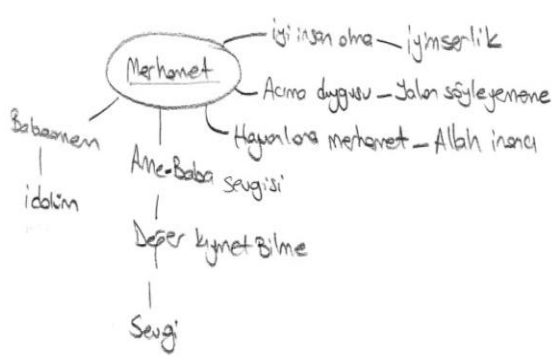 iyi insan olma – iyimserlik
Merhamet
Acıma duygusu – Yalan söyleyememe
Hayvanlara merhamet – Allah inancı
Babaannem
idolüm
Anne-Baba sevgisi
Değer kıymet Bilme
Sevgi